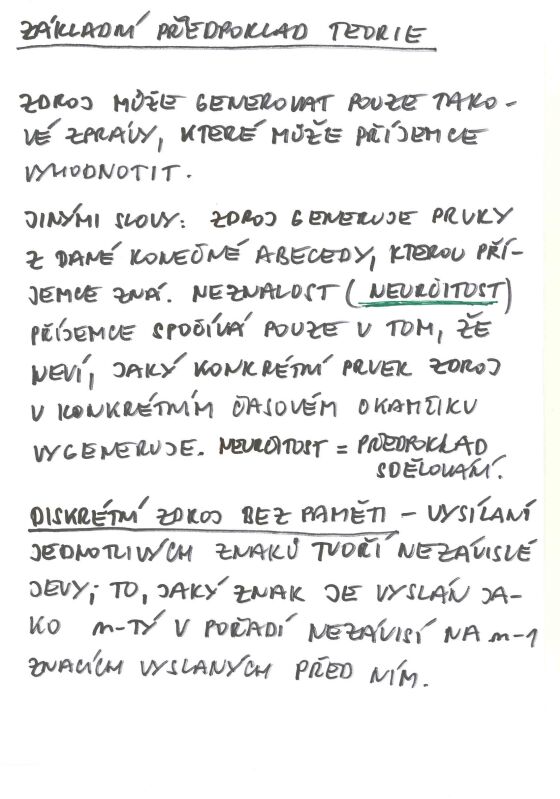 ZÁKLADNÍ PŘEDPOKLAD TEORIE
ZDROJ MŮŽE GENEROVAT POUZE TAKO-
VÉ ZPRÁVY, KTERÉ MŮŽE PŘÍJEMCE
VYHODNOTIT.
JINÝMI SLOVY: ZDROJ GENERUJE PRVKY
Z DANÉ KONEČNÉ ABECEDY, KTEROU PŘÍ-
JEMCE ZNÁ. NEZNALOST (NEURČITOST)
PŘÍJEMCE SPOČÍVÁ POUZE V TOM, ŽE
NEVÍ, JAKÝ KONKRÉTNÍ PRVEK ZDROJ
V KONKRÉTNÍM ČASOVÉM OKAMŽIKU
VYGENERUJE. NEURČITOST = PŘEDPOKLAD
SDĚLOVÁNÍ.
DISKRÉTNÍ ZDROJ BEZ PAMĚTI - VYSÍLÁNÍ
JEDNOTLIVÝCH ZNAKŮ TVOŘÍ NEZÁVISLÉ
JEVY; TO, JAKÝ ZNAK JE VYSLÁN JA-
KO n-TÝ V POŘADÍ NEZÁVISÍ NA n-1
ZNACÍCH VYSLANÝCH PŘED NÍM.